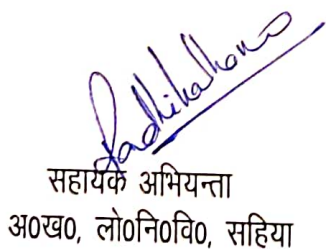 सहायक अभियन्ता
अ०ख०, लो०नि०वि०, सहिया